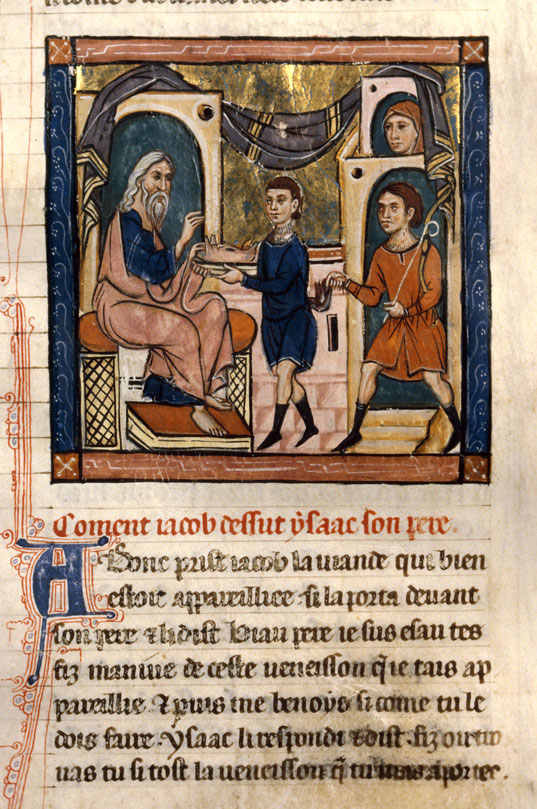 Coment iacob dessut ysaac son pere.
Adonc prist iacob la uiande qui bien
estoit appareillie. si la porta deuant
son pere & li dist Biau pere ie sus esau tes
fiz maniue de ceste ueneisson que iais ap
pareillie. & puis me benoys si come tu le
dois faire. ysaac li respondi & dist. fiz ou tro
uas tu si tost la ueneisson q̃ tu mas aportee.